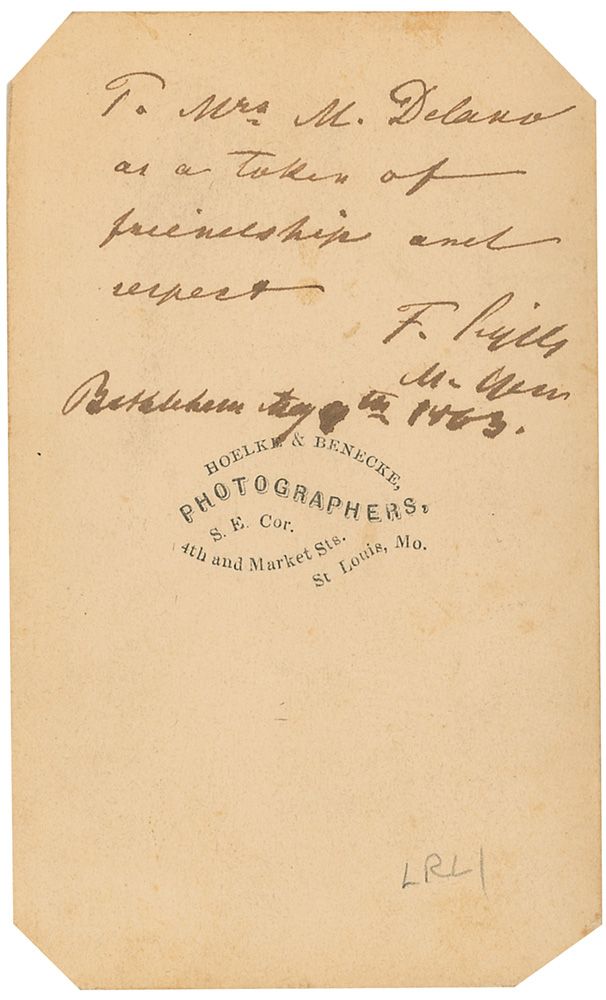 To Mrs M. Delano
as a token of
friendship and
respect
F. Sigel,
M. Gen
Bethlehem Aug 9th 1863.
HOELKE & BENECKE,
PHOTOGRAPHERS,
S. E. Cor.
4th and Market Sts.
St Louis, Mo.
LRL